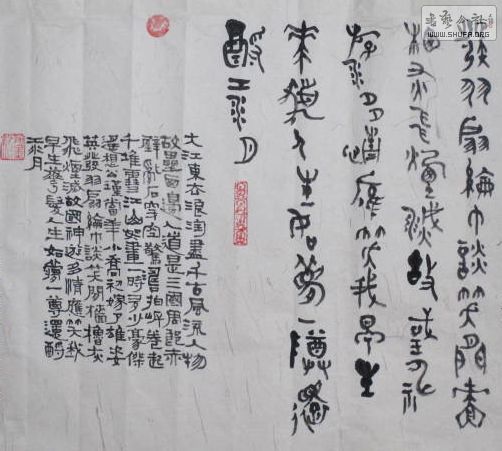 书艺公社
WWW.SHUFA.ORG
發羽扇綸巾談笑間檣
櫓灰飛煙滅故國神
游多情應笑我早生
華髮人生如夢一樽還
酹江月
大江東去浪淘盡千古風流人物
故壘西邊人道是三國周郎赤
壁亂石穿空驚濤拍岸卷起
千堆雪江山如畫一時多少豪傑
遙想公瑾當年小喬初嫁了雄姿
英發羽扇綸巾談笑間檣櫓灰
飛煙滅故國神遊多情應笑我
早生華髮人生如夢一尊還酹
江月